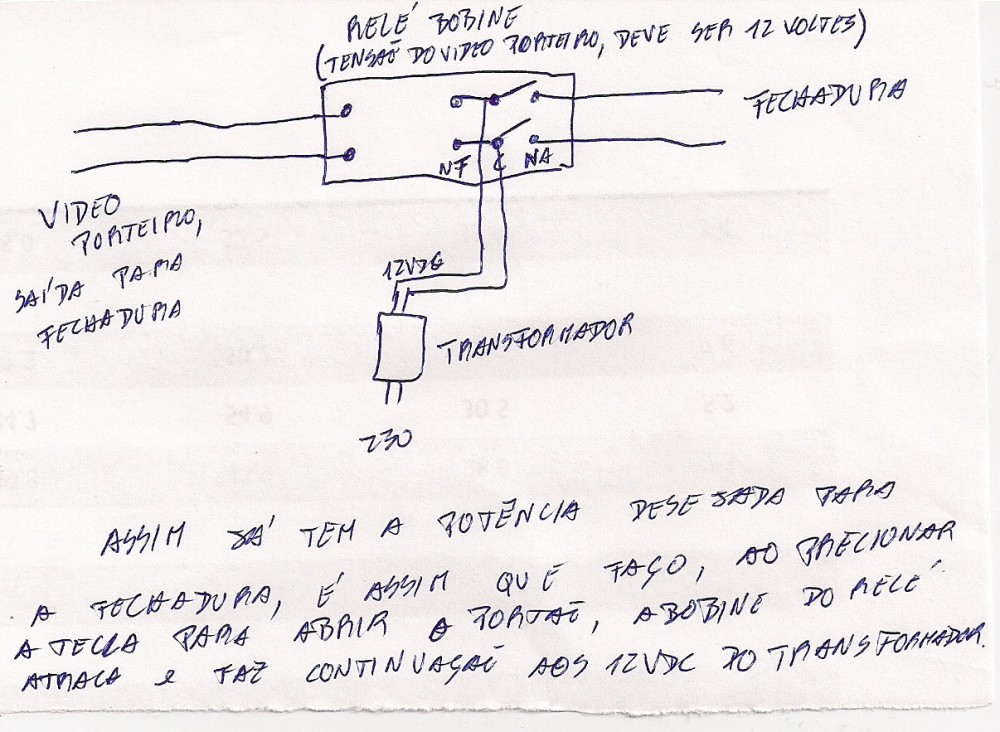 RELÉ BOBINE
(TENSAÕ DO VIDEO PORTEIRO, DEVE SER 12 VOLTES)
FECHADURA
NF C NA
VIDEO
PORTEIRO,
SAÍDA PARA
FECHADURA
12VDC
TRANSFORMADOR
230
ASSIM JÁ TEM A POTÊNCIA DESEJADA PARA
A FECHADURA, É ASSIM QUE FAÇO, AO PRECIONAR
A TECLA PARA ABRIR A PORTAÕ, A BOBINE DO RELÉ
ATRACA e FAZ CONTINUAÇAÕ AOS 12VDC DO TRANSFORMADOR.